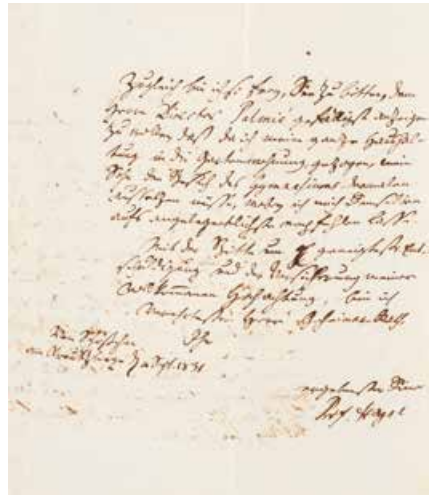 Zugleich bin ich so frey, Sie zu bitten, dem
Herrn Director Palmié gefälligst anzeigen
zu wollen, daß da ich meine ganze Haushal-
tung in die Gartenwohnung gezogen, mein
Sohn den Besuch des Gymnasiums
aussetzen müsse, ich mich
aufs angelegentlichste empfehlen lasse.
Mit der Bitte um geneigteste Ent-
schuldigung und der Versicherung meiner
vollkommenen Hochachtung, bin ich
Geheimer Rath
Ihr
Sept. 1831
ergebenster Diener
Prof. Hegel